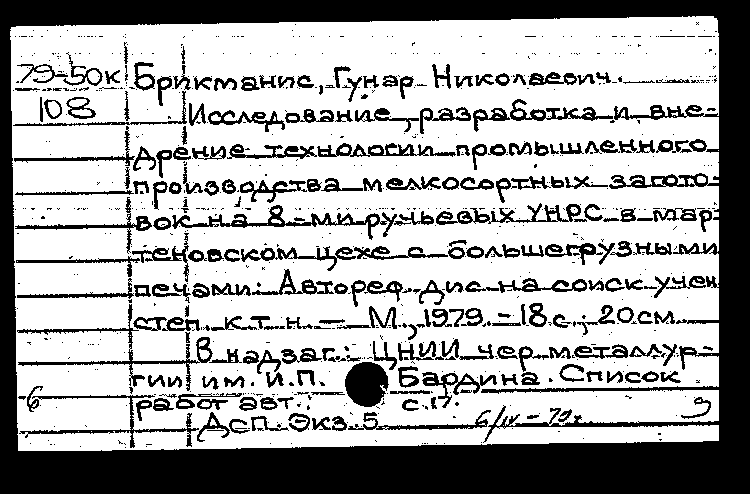 79-50к Брикманис, Гунар Николаевич.
108 Исследование, разработка и вне-
дрение технологии промышленного
производства мелкосортных загото-
вок на 8-ми ручьевых УНРС в мар-
теновском цехе с большегрузными
печами: Автореф. дис. на соиск. учен.
степ. к.т.н. — М., 1979. - 18 с.; 20 см.
В надзаг.: ЦНИИ чер. металлур-
гии им. И.П. Бардина. Список
6 работ авт.: с. 17.
Дсп. Экз. 5 6/IV - 79г. 9